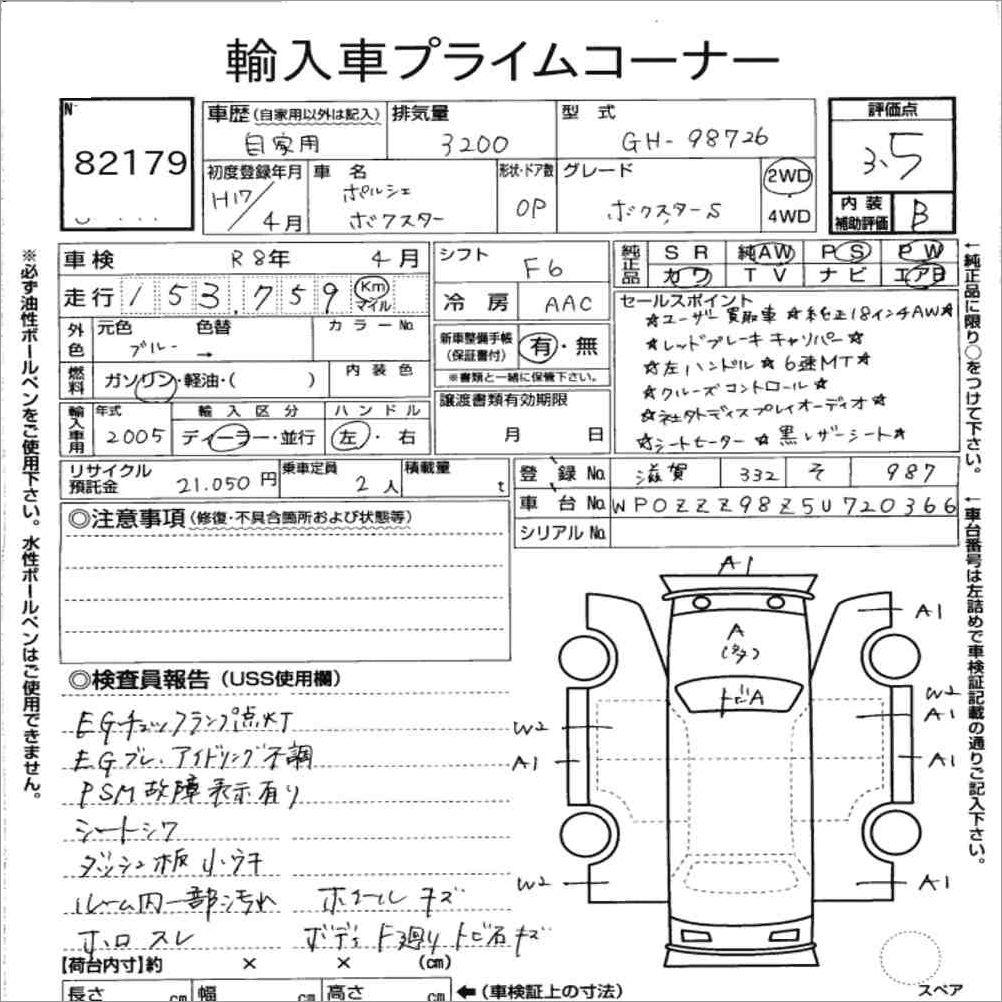 輸入車プライムコーナー
No.
82179
車歴 (自家用以外は記入) 排気量 型式 評価点
自家用 3200 GH-98726 3.5
初度登録年月 車名 形状・ドア数 グレード 2WD・4WD 内装補助評価 B
H17/4月 ポルシェ ボクスター OP ボクスターS
車検 R8年 4月 シフト F6
走行 153,759 Km マイル 冷房 AAC
純正品 SR 純AW PS PW
カワ TV ナビ エアB
外色 元色 色替 カラーNo.
ブルー →
燃料 ガソリン・軽油・( ) 内装色
新車整備手帳(保証書付) 有・無
※書類と一緒に保管下さい。
輸入車用 年式 輸入区分 ハンドル
2005 ディーラー・並行 左・右
譲渡書類有効期限
月 日
セールスポイント
☆ユーザー買取車 ☆純正18インチAW☆
☆レッドブレーキキャリパー☆
☆左ハンドル☆6速MT☆
☆クルーズコントロール☆
☆社外ディスプレイオーディオ☆
☆シートヒーター☆黒レザーシート☆
リサイクル預託金 21.050円 乗車定員 2人 積載量 t
登録No. 滋賀 332 そ 987
車台No. WP0ZZZ98Z5U720366
シリアルNo.
◎注意事項 (修復・不具合箇所および状態等)
◎検査員報告 (USS使用欄)
EGチェックランプ点灯
EGブレ、アイドリング不調
PSM故障表示有り
シートシワ
ダッシュ板小キズ
ルーム内一部汚れ ホイールキズ
ホロスレ ボディ下廻りトビ石キズ
A1
A
トビA
A1
W2
W2
A1
A1
A1
W2
A1
スペア
【荷台内寸】約 × × (cm)
長さ cm 幅 cm 高さ cm ←(車検証上の寸法)
※必ず油性ボールペンをご使用下さい。水性ボールペンはご使用できません。
←純正品に限り○をつけて下さい。
←車台番号は左詰めで車検証記載の通りご記入下さい。